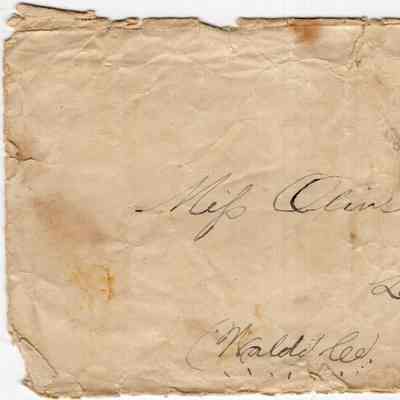 Miss Olive
(Waldo Co.)